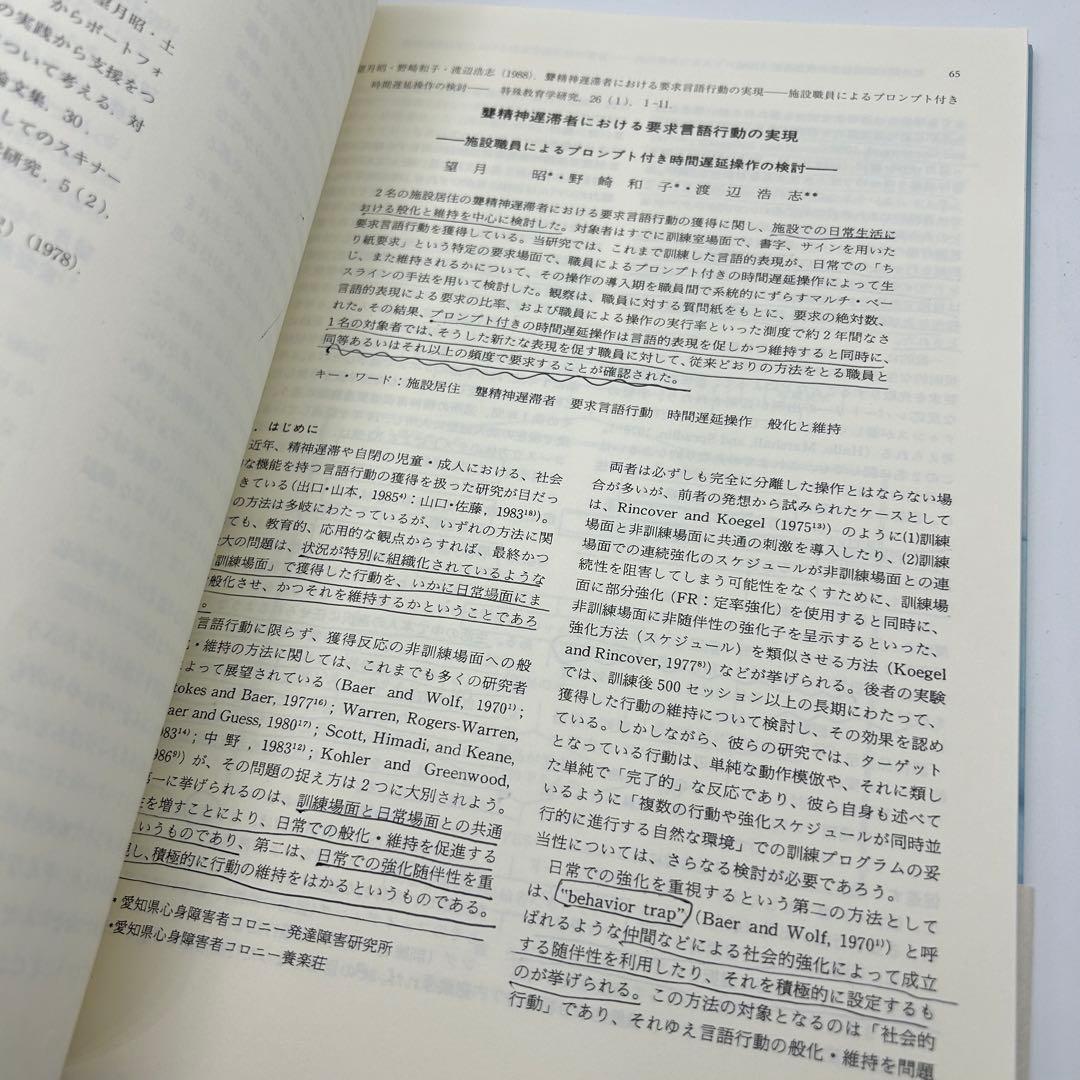 望月昭・土
からポートフォ
の実践から支援をつ
ついて考える,対
論文集,30,
してのスキナー
研究,5(2),
(1978).
65
望月昭・野崎和子・渡辺浩志(1988).聾精神遅滞者における要求言語行動の実現――施設職員によるプロンプト付き
時間遅延操作の検討―― 特殊教育学研究,26(1),1-11.
聾精神遅滞者における要求言語行動の実現
――施設職員によるプロンプト付き時間遅延操作の検討――
望月 昭*・野崎和子*・渡辺浩志**
2名の施設居住の聾精神遅滞者における要求言語行動の獲得に関し、施設での日常生活に
おける般化と維持を中心に検討した。対象者はすでに訓練室場面で、書字、サインを用いた
要求言語行動を獲得している。当研究では、これまで訓練した言語的表現が、日常での「ち
り紙要求」という特定の要求場面で、職員によるプロンプト付きの時間遅延操作によって生
じ、また維持されるかについて、その操作の導入期を職員間で系統的にずらすマルチ・ベー
スラインの手法を用いて検討した。観察は、職員に対する質問紙をもとに、要求の絶対数、
言語的表現による要求の比率、および職員による操作の実行率といった測度で約2年間なさ
れた。その結果、プロンプト付きの時間遅延操作は言語的表現を促しかつ維持すると同時に、
1名の対象者では、そうした新たな表現を促す職員に対して、従来どおりの方法をとる職員と
同等あるいはそれ以上の頻度で要求することが確認された。
キー・ワード:施設居住 聾精神遅滞者 要求言語行動 時間遅延操作 般化と維持
. はじめに
近年、精神遅滞や自閉の児童・成人における、社会
な機能を持つ言語行動の獲得を扱った研究が目だっ
きている(出口・山本, 1985⁴⁾:山口・佐藤, 1983¹⁸⁾)。
の方法は多岐にわたっているが、いずれの方法に関
ても、教育的、応用的な観点からすれば、最終かつ
大の問題は、状況が特別に組織化されているような
訓練場面」で獲得した行動を、いかに日常場面にま
般化させ、かつそれを維持するかということであろ
。
言語行動に限らず、獲得反応の非訓練場面への般
・維持の方法に関しては、これまでも多くの研究者
よって展望されている (Baer and Wolf, 1970¹⁾;
tokes and Baer, 1977¹⁶⁾; Warren, Rogers-Warren,
aer and Guess, 1980¹⁷⁾; Scott, Himadi, and Keane,
983¹⁴⁾; 中野, 1983¹²⁾; Kohler and Greenwood,
986⁹⁾) が、その問題の捉え方は2つに大別されよう。
第一に挙げられるのは、訓練場面と日常場面との共通
性を増すことにより、日常での般化・維持を促進する
というものであり、第二は、日常での強化随伴性を重
視し、積極的に行動の維持をはかるというものである。
*愛知県心身障害者コロニー発達障害研究所
*愛知県心身障害者コロニー養楽荘
両者は必ずしも完全に分離した操作とはならない場
合が多いが、前者の発想から試みられたケースとして
は、Rincover and Koegel (1975¹³⁾) のように(1)訓練
場面と非訓練場面に共通の刺激を導入したり、(2)訓練
場面での連続強化のスケジュールが非訓練場面との連
続性を阻害してしまう可能性をなくすために、訓練場
面に部分強化(FR:定率強化)を使用すると同時に、
非訓練場面に非随伴性の強化子を呈示するといった、
強化方法(スケジュール)を類似させる方法 (Koegel
and Rincover, 1977⁸⁾) などが挙げられる。後者の実験
では、訓練後500セッション以上の長期にわたって、
獲得した行動の維持について検討し、その効果を認め
ている。しかしながら、彼らの研究では、ターゲット
となっている行動は、単純な動作模倣や、それに類し
た単純で「完了的」な反応であり、彼ら自身も述べて
いるように「複数の行動や強化スケジュールが同時並
行的に進行する自然な環境」での訓練プログラムの妥
当性については、さらなる検討が必要であろう。
日常での強化を重視するという第二の方法として
は、“behavior trap” (Baer and Wolf, 1970¹⁾) と呼
ばれるような仲間などによる社会的強化によって成立
する随伴性を利用したり、それを積極的に設定するも
のが挙げられる。この方法の対象となるのは「社会的
行動」であり、それゆえ言語行動の般化・維持を問題